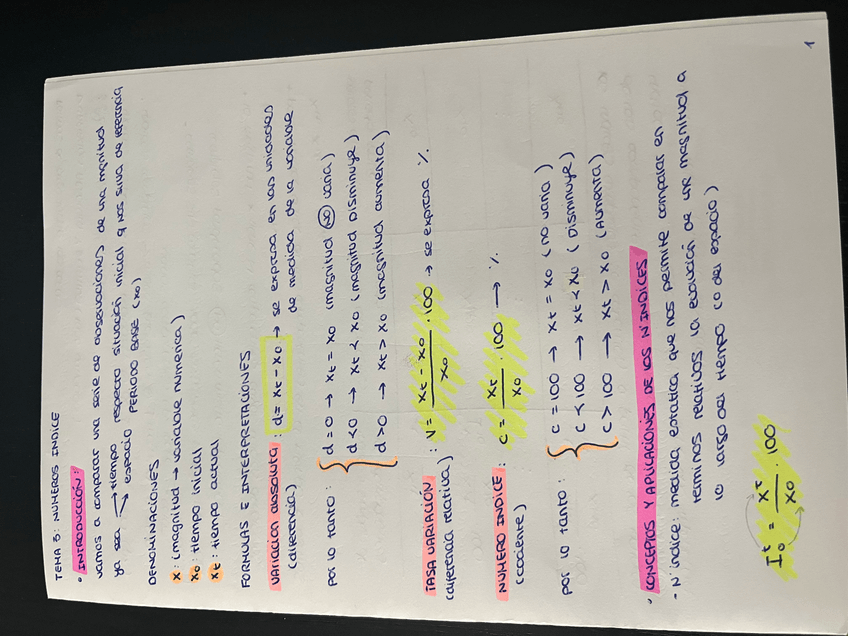 TEMA 3: NUMEROS INDICE
• INTRODUCCIÓN:
vamos a comparar una serie de observaciones de una magnitud
ya sea → tiempo respecto situación inicial q nos sirva de referencia
→ espacio PERIODO BASE (x0)
DENOMINACIONES
x: (magnitud → variable numerica)
x0: tiempo inicial
xt: tiempo actual
FORMULAS E INTERPRETACIONES
variación absoluta: d = xt - x0 → se expresa en las unidades
(diferencia) de medida de la variable
por lo tanto: { d = 0 → xt = x0 (magnitud NO varia)
d < 0 → xt < x0 (magnitud disminuye)
d > 0 → xt > x0 (magnitud aumenta)
TASA VARIACIÓN : V = (xt - x0) / x0 · 100 → se expresa %
(diferencia relativa)
NUMERO INDICE : C = xt / x0 · 100 → %
(cociente)
por lo tanto: { C = 100 → xt = x0 (no varia)
C < 100 → xt < x0 (Disminuye)
C > 100 → xt > x0 (Aumenta)
• CONCEPTOS Y APLICACIONES DE LOS NºINDICES
- Nºindice: medida estatica que nos permite comparar en
terminos relativos la evolución de una magnitud a
lo largo del tiempo (o del espacio)
I t 0 = xt / x0 · 100
1